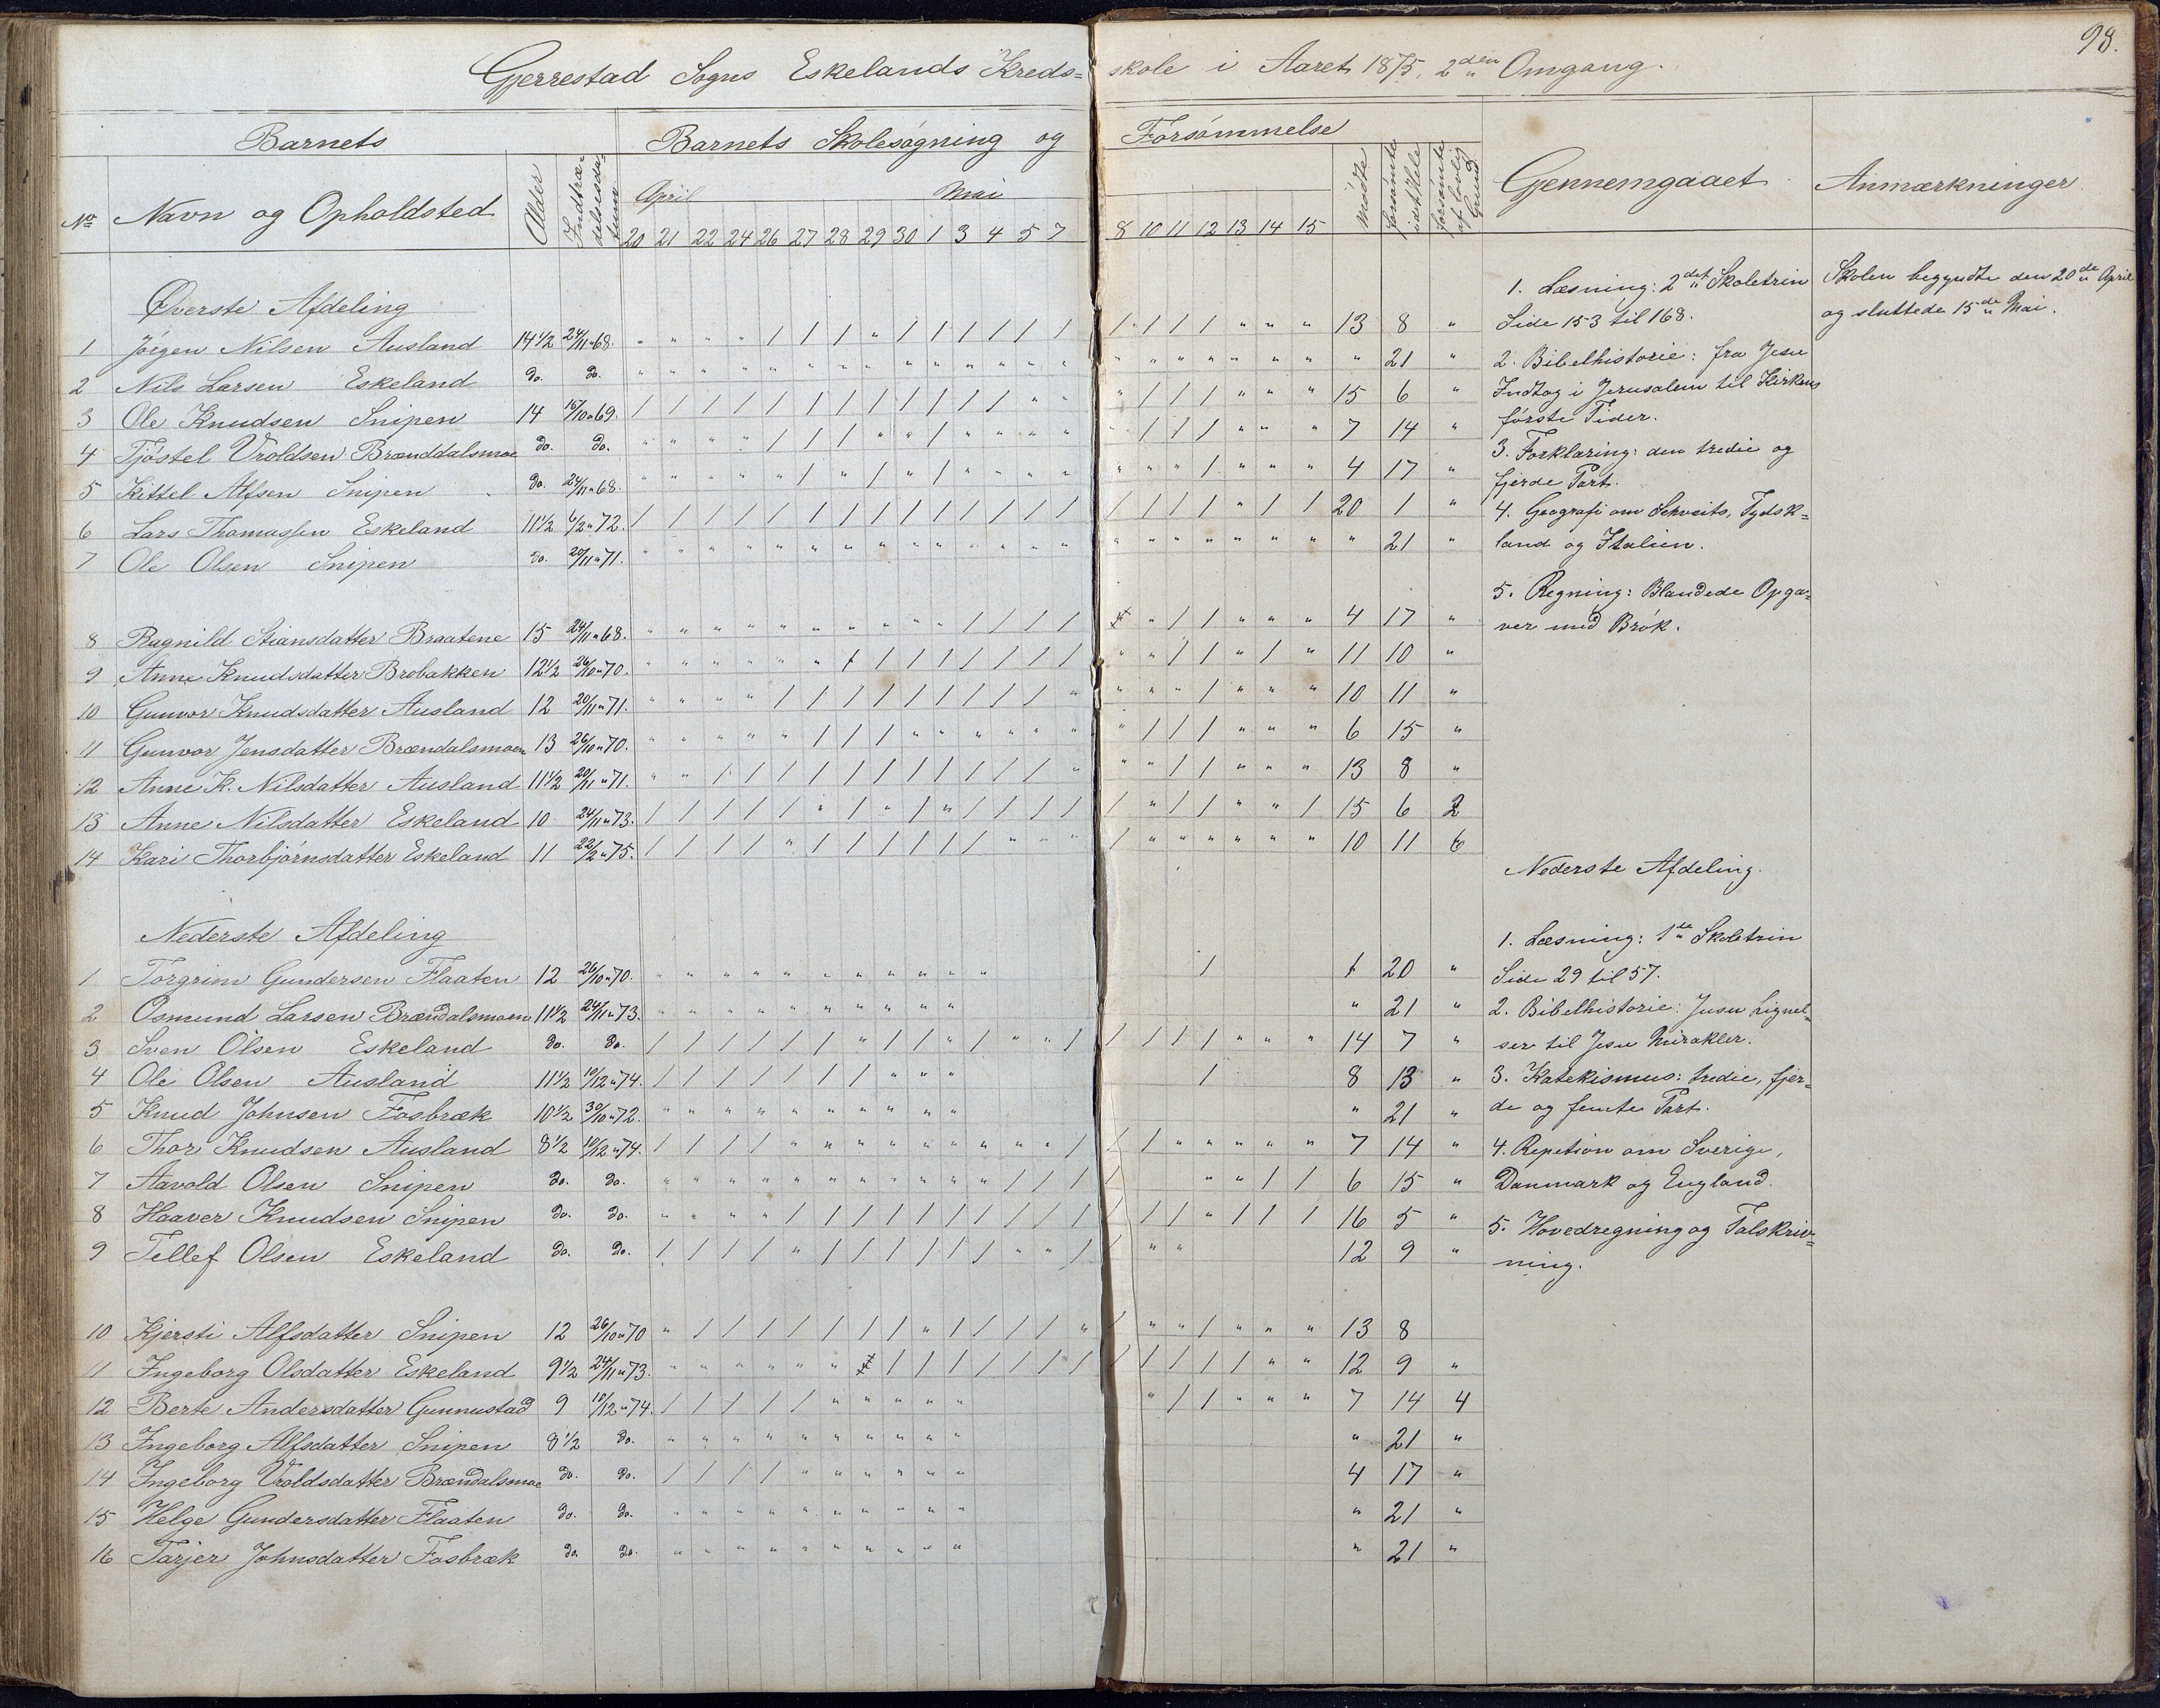 98.
Gjerrestad Sogns Eskelands Kreds= skole i Aaret 1875, 2den Omgang.
Barnets Barnets Skolesøgning og Forsømmelse
No Navn og Opholdsted Alder Indtræ- delsesda- tum April Mai Mødte forsømte idethele forsømte af lovlig Grund Gjennemgaaet Anmærkninger
20 21 22 24 26 27 28 29 30 1 3 4 5 7 8 10 11 12 13 14 15
Øverste Afdeling
1 Jørgen Nilsen Ausland 14 1/2 24/11 " 68. " " " " / / / " / / / / / / / / / / " " " 13 8 "
2 Nils Larsen Eskeland do. do. " " " " " " " " " " " " " " " " " " " " " " 21 "
3 Ole Knudsen Snipen 14 15/10 " 69. / / / / / / / / / / / / " " " / / / " " " 15 6 "
4 Tjøstel Vroldsen Brænddalsmoe do. do. " " " " / / / " " / " " " " " / / / " " " 7 14 "
5 Kittel Alfsen Snipen do. 24/11 " 68. " " " " " / " / " / " " " " " " " / " " " 4 17 "
6 Lars Thomassen Eskeland 11 1/2 6/2 " 72. / / / / / / / / / / / / / / / / / / " / / 20 1 "
7 Ole Olsen Snipen do. 20/11 " 71. " " " " " " " " " " " " " " " " " " " " " " 21 "
8 Ragnild Stiansdatter Braatene 15 24/11 " 68. " " " " " " " " " " / / / / " " / / " " " 4 17 "
9 Anne Knudsdatter Brobakken 12 1/2 26/10 " 70. " " " " " " / / / / / / / / " " / / " / " 11 10 "
10 Gunvor Knudsdatter Ausland 12 20/11 " 71. " " " " / / / / / / / / / " " " " / " " " 10 11 "
11 Gunvor Jensdatter Brændalsmoen 13 26/10 " 70. " " " " " / / / " " " " " " " / / / " " " 6 15 "
12 Anne K. Nilsdatter Ausland 11 1/2 20/11 " 71. " " / / / / / / / / / / / " " " / / " " " 13 8 "
13 Anne Nilsdatter Eskeland 10 24/11 " 73. / / / / / " / " / " / / / / / " / / " " / 15 6 2
14 Kari Thorbjørnsdatter Eskeland 11 22/2 " 75. / / / / " / / / / / / " " " / " " " " " " 10 11 6
Nederste Afdeling
1 Torgrim Gundersen Flaaten 12 26/10 " 70. " " " " " " " " " " " / 1 20 "
2 Osmund Larsen Brændalsmoen 11 1/2 24/11 " 73. " " " " " " " " " " " 21 "
3 Sven Olsen Eskeland do. do. / / / / / / " / / " / " " / / / / / " " " 14 7 "
4 Ole Olsen Ausland 11 1/2 10/12 " 74. / / / / / / / " " " / 8 13 "
5 Knud Johnsen Fosbræk 10 1/2 30/10 " 72. " " " " " " " " " " " 21 "
6 Thor Knudsen Ausland 8 1/2 10/12 " 74. / / / / " " " " " " " " " / / / " " " " " 7 14 "
7 Aavold Olsen Snipen do. do. " " " " " " " " " " " / / / / " " / / 6 15 "
8 Haaver Knudsen Snipen do. do. " " " " / / / / / / / / / / / / / " / / / 16 5 "
9 Tellef Olsen Eskeland do. do. / / / / " / / / / / / " " / / " " 12 9 "
10 Kjersti Alfsdatter Snipen 12 26/10 " 70 " / / / / / / / " / / / / " / " " / " " " 13 8
11 Ingeborg Olsdatter Eskeland 9 1/2 24/11 " 73. " " " " " " " / / / / / / / / / / / / " " 12 9 "
12 Berte Andersdatter Gunnustad 9 10/12 " 74. / / / / / " " " " " " / / " " " 7 14 4
13 Ingeborg Alfsdatter Snipen 8 1/2 do. " " " " " " " " " " " 21 "
14 Ingeborg Vroldsdatter Brændalsmoe do. do. / / / / " " " " " " 4 17 "
15 Helge Gundersdatter Flaaten do. do. " " " " " " " " " " " 21 "
16 Tarjer Johnsdatter Fosbræk do. do. " " " " " " " " " " " 21 "
1. Læsning: 2det Skoletrin
Side 153 til 168.
2. Bibelhistorie: fra Jesu
Indtog i Jerusalem til Kirkens
første Tider.
3. Forklaring: den tredie og
fjerde Part.
4. Geografi om Schveits, Tydsk=
land og Italien.
5. Regning: Blandede Opga=
ver med Brøk.
Nederste Afdeling.
1. Læsning: 1ste Skoletrin
Side 29 til 57.
2. Bibelhistorie: Jesu Lignel=
ser til Jesu Mirakler.
3. Katekismus: tredie, fjer=
de og femte Part.
4. Repetsion om Sverige,
Danmark og England.
5. Hovedregning og Talskriv=
ning.
Skolen begyndte den 20de April
og sluttede 15de Mai.